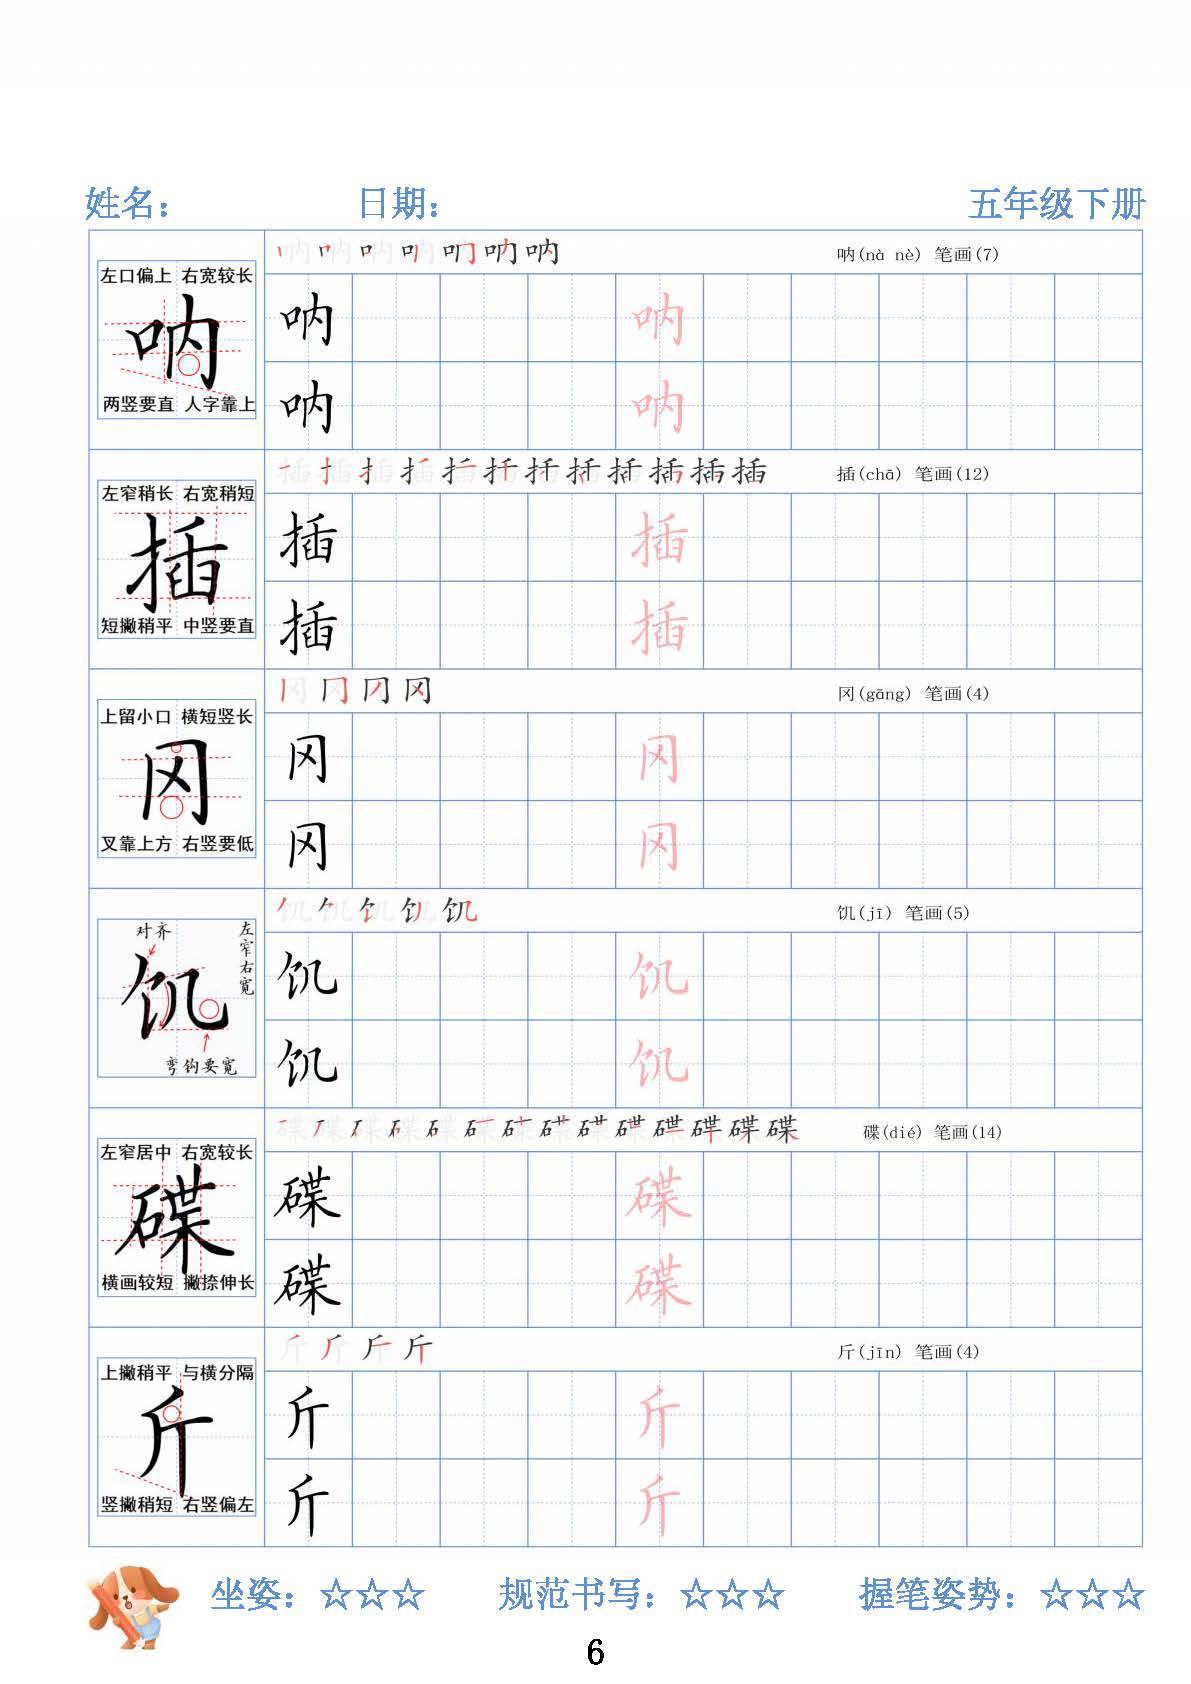 姓名： 日期： 五年级下册
呐(nà nè) 笔画(7)
左口偏上 右宽较长
呐
两竖要直 人字靠上
呐 呐
呐 呐
插(chā) 笔画(12)
左窄稍长 右宽稍短
插
短撇稍平 中竖要直
插 插
插 插
冈(gāng) 笔画(4)
上留小口 横短竖长
冈
叉靠上方 右竖要低
冈 冈
冈 冈
饥(jī) 笔画(5)
对齐 左窄右宽
饥
弯钩要宽
饥 饥
饥 饥
碟(dié) 笔画(14)
左窄居中 右宽较长
碟
横画较短 撇捺伸长
碟 碟
碟 碟
斤(jīn) 笔画(4)
上撇稍平 与横分隔
斤
竖撇稍短 右竖偏左
斤 斤
斤 斤
坐姿：☆☆☆ 规范书写：☆☆☆ 握笔姿势：☆☆☆
6